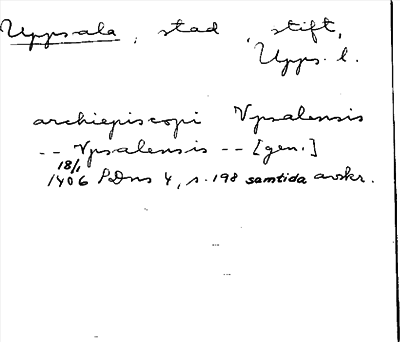 Uppsala, stad, stift,
Upps. l.
archiepiscopi Vpsalensis
-- Vpsalensis -- [gen.]
18/1
1406 SDns 4, s. 198 samtida avskr.